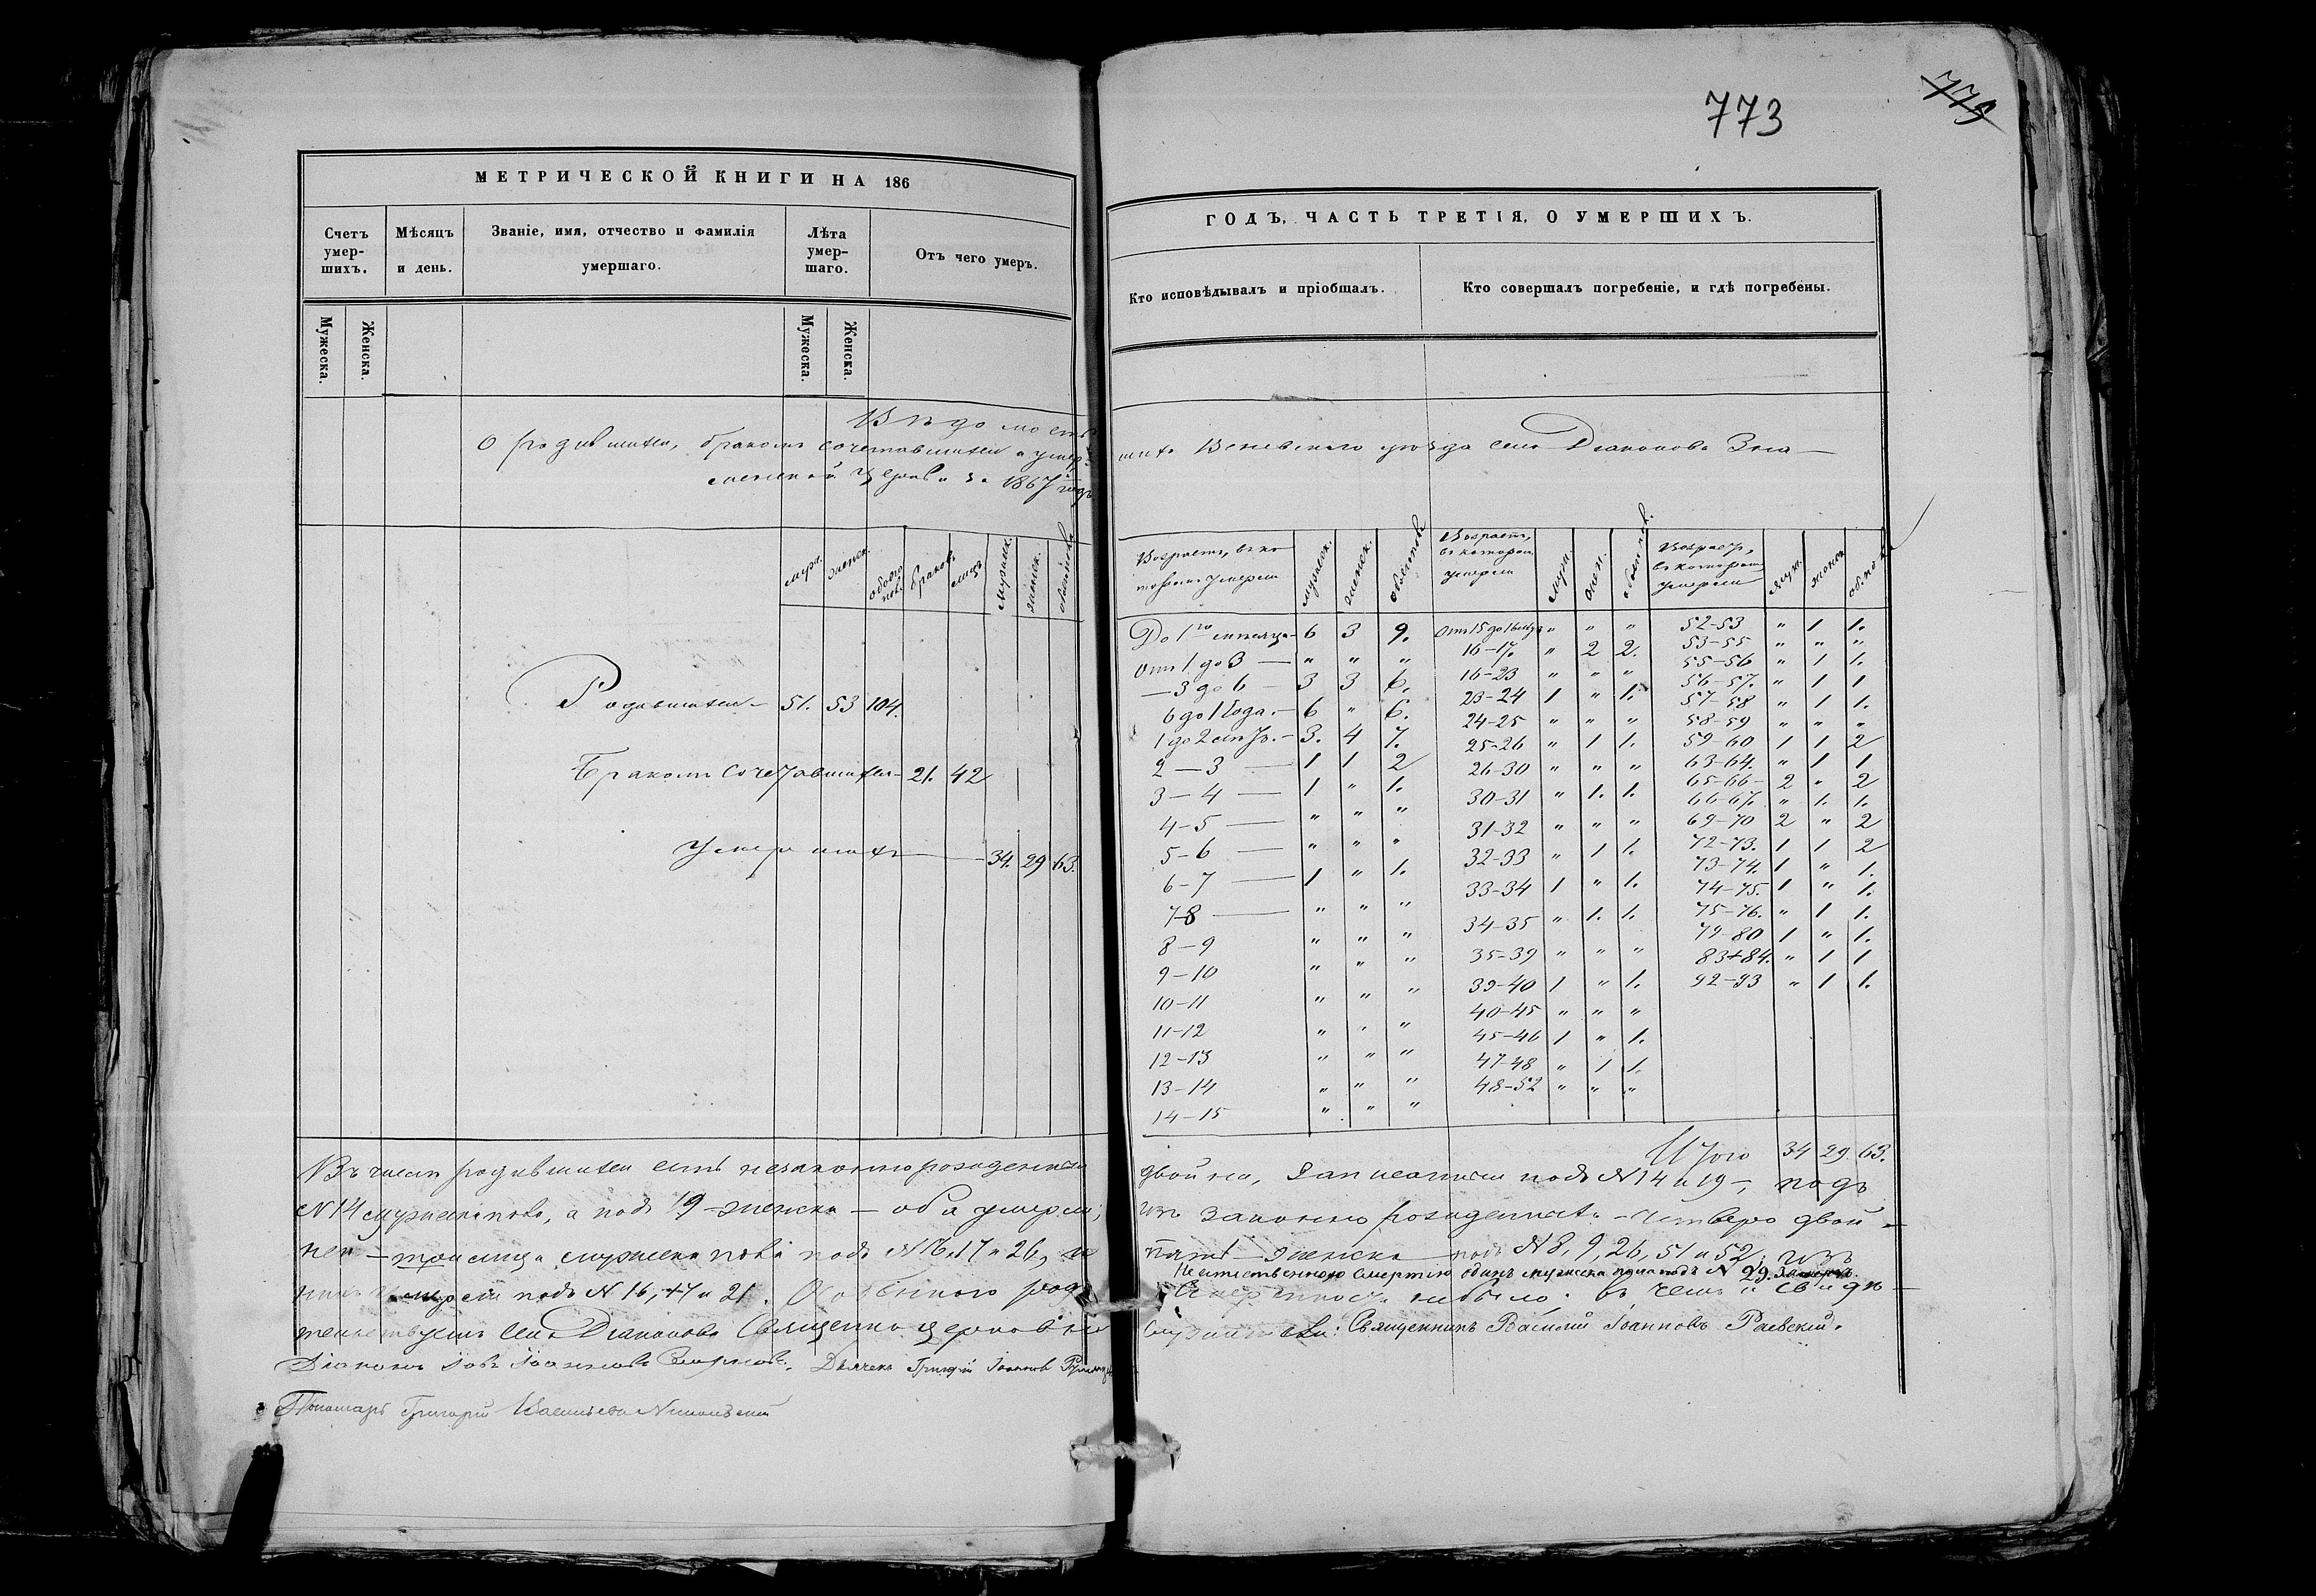 773
775
МЕТРИЧЕСКОЙ КНИГИ НА 186
Счетъ умер-шихъ.
Мѣсяцъ и день.
Званіе, имя, отчество и фамилія умершаго.
Лѣта умер-шаго.
Отъ чего умеръ.
Мужеска.
Женска.
Мужеска.
Женска.
Вѣдомость
О родившихся, бракомъ сочетавшихся и умер
менской церкви за 1867 годъ.
муж. женск. обоего пола браковъ лицъ мужеск. женск. обоего пола
Родившихся 51. 53 104.
Бракомъ сочетавшихся 21. 42
Умершихъ 34. 29 63.
Въ числѣ родившихся есть незаконнорожденные
N 14 мужеска пола, а подъ 19 женска — оба умерли;
ней — три лица мужеска пола подъ N 16, 17 и 26, и
умерли подъ N 16, 17 и 21.
села Діаконова Священно церковно
Діаконъ Іовъ Іоанновъ Смирновъ. Дьячекъ Григорій Іоанновъ
Пономарь Григорій Васильевъ Никольскій
ГОДЪ, ЧАСТЬ ТРЕТІЯ, О УМЕРШИХЪ.
Кто исповѣдывалъ и пріобщалъ.
Кто совершалъ погребеніе, и гдѣ погребены.
шихъ Веневскаго уѣзда села Діаконова Зна
Возрастъ, въ которомъ умерли мужеск. женск. обоего пола
До 1го мѣсяца 6 3 9.
Отъ 1 до 3 — " " "
— 3 до 6 3 3 6.
6 до 1 года. 6 " 6.
1 до 2 лѣтъ. 3. 4 7.
2 — 3 1 1 2
3 — 4 1 " 1.
4 - 5 " " "
5 - 6 " " "
6 - 7 1 " 1.
7-8 " " "
8 - 9 " " "
9 - 10 " " "
10 - 11 " " "
11 - 12 " " "
12 - 13 " " "
13 - 14 " " "
14 - 15 " " "
Возрастъ, въ котором умерли муж. жен. обоего пол.
Отъ 15 до 16 " " "
16 - 17. " 2 2.
16 - 23 " " "
23 - 24 1 " 1.
24 - 25 " " "
25 - 26 " 1 1.
26 - 30 " " "
30 - 31 " 1. 1.
31 - 32 " " "
32 - 33 " 1 1.
33 - 34 1 " 1.
34 - 35 " 1. 1.
35 - 39 " " "
39 - 40 1 " 1.
40 - 45 " " "
45 - 46 1 " 1.
47 - 48 " 1 1.
48 - 52 " " "
Возрастъ, въ котором умерли муж. женск об. по
52 - 53 " 1 1.
53 - 55 " " "
55 - 56 " 1 1.
56 - 57. " 1 1
57 - 58 " 1 1.
58 - 59 " " "
59 - 60 1 1 2
63 - 64. " 1 1
65 - 66 2 " 2
66 - 67. " 1. 1.
69 - 70 2 " 2
72 - 73. 1 1 2
73 - 74. 1 " 1.
74 - 75. 1 " 1.
75 - 76. " 1 1.
79 - 80 1 " 1.
83 - 84. " 1 1
92 - 93 " 1 1.
Итого 34 29 63.
двойни, записанные подъ N 14 и 19 —, подъ
изъ законнорожденныхъ — четверо двой
пять женска подъ N 8, 9, 26, 51 и 52; изъ
Неестественною смертію одинъ мужеска пола подъ N 29.
не было. въ чемъ и свидѣ
служители: Священникъ Василій Іоанновъ Раевскій.